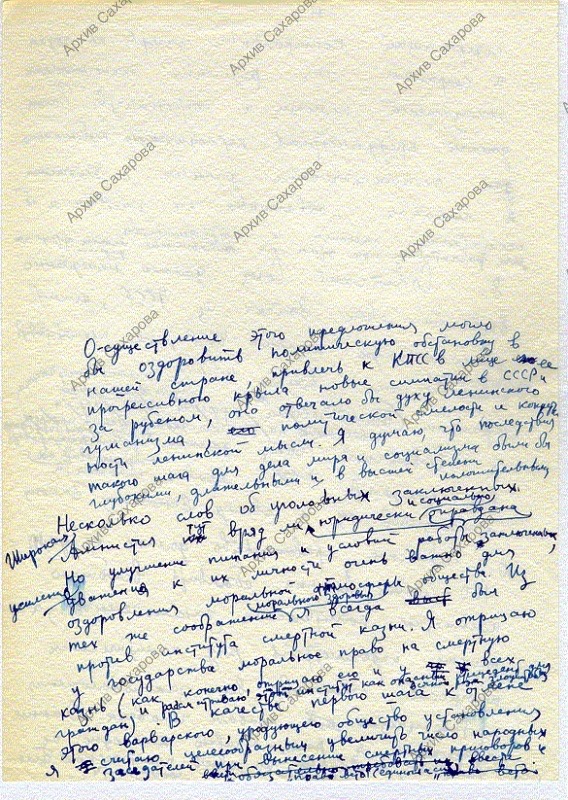 Осуществление этого предложения могло
бы оздоровить политическую обстановку в
нашей стране, привлечь к КПСС в лице ее
прогрессивного крыла новые симпатии в СССР и
за рубежом, оно отвечало бы духу ленинского
гуманизма, политической смелости и конкрет-
ности ленинской мысли. Я думаю, что последствия
такого шага для дела мира и социализма были бы
глубокими, длительными и в высшей степени положительными
Несколько слов об уголовных заключенных.
Широкая амнистия вряд ли юридически и социально оправдана
Но улучшение питания и условий работы заключенных,
усиление уважения к их личности очень важно для
оздоровления моральной атмосферы общества. Из
тех же соображений морального здоровья я всегда был
против института смертной казни. Я отрицаю
у государства моральное право на смертную
казнь (как конечно отрицаю его и у всех
граждан) и рассматриваю этот институт как опасный
В качестве первого шага к отмене
этого варварского, уродующего общество установления
я считаю целесообразным увеличить число народных
заседателей при вынесении смертных приговоров и